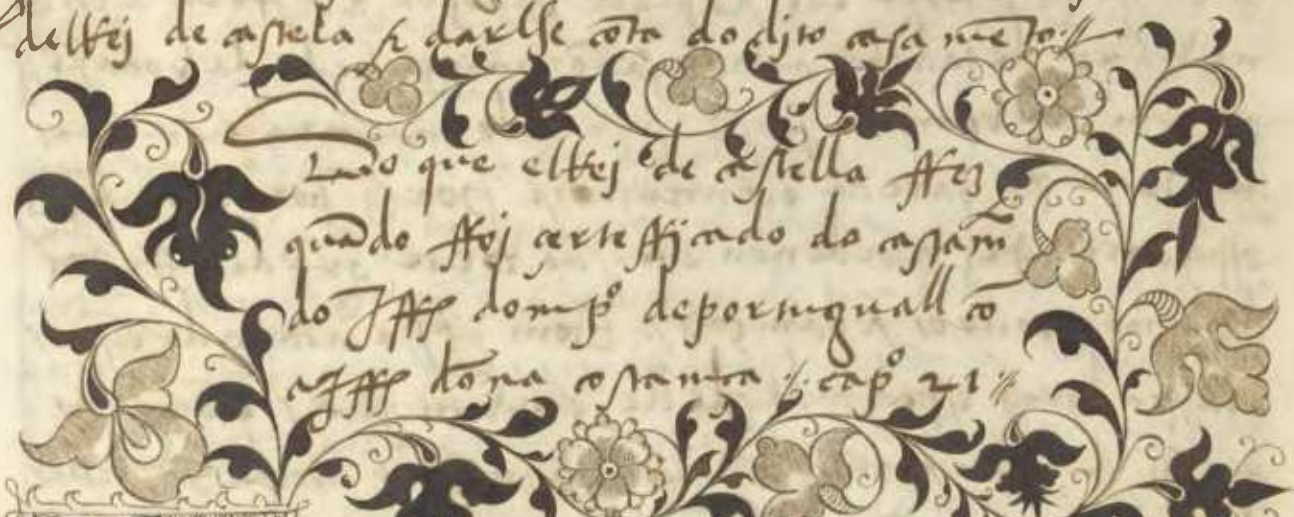 delRej de castela & darlhe cõta do dito casamẽto
que elRej de castella ffez
quãdo ffoj certeffjcado do casam̃
do Iff domp̃º de portuguall cõ
a Iff dona costança capº 21